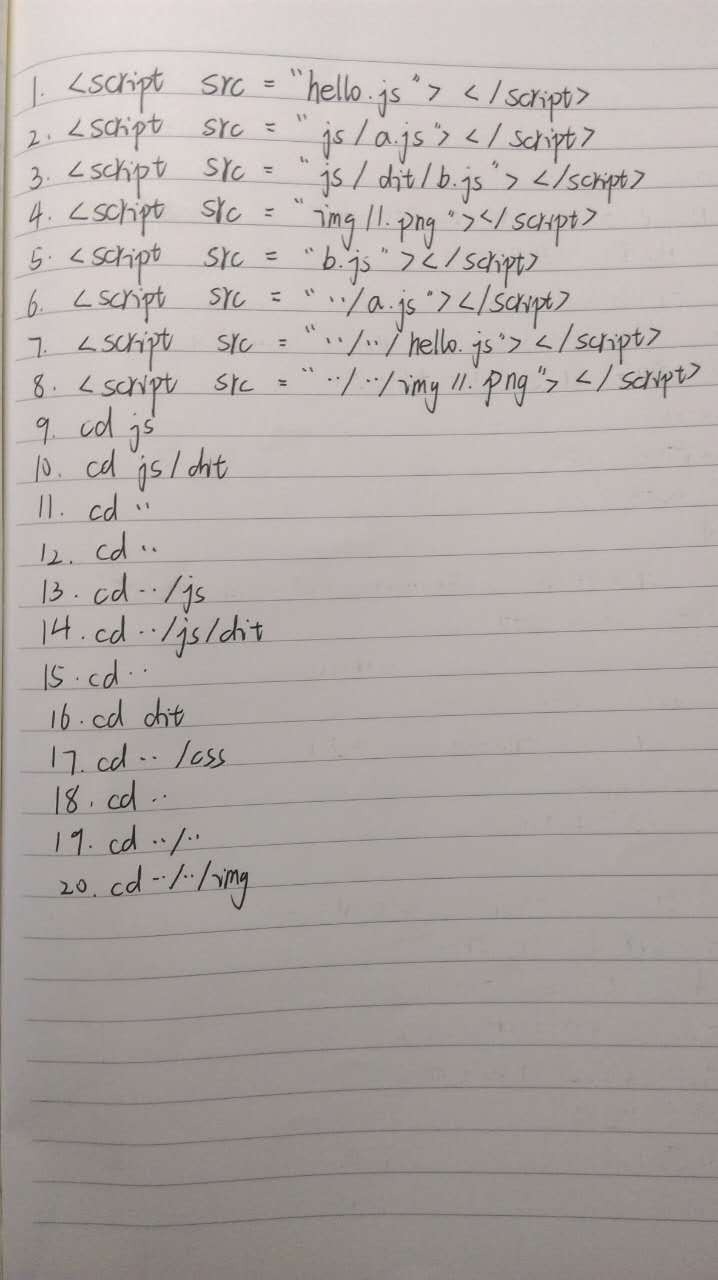 1. <script src = "hello.js"> </script>
2. <script src = "js/a.js"> </script>
3. <script src = "js/dit/b.js"> </script>
4. <script src = "img/1.png"></script>
5. <script src = "b.js"></script>
6. <script src = "../a.js"></script>
7. <script src = "../../hello.js"> </script>
8. <script src = "../../img/1.png"> </script>
9. cd js
10. cd js/dit
11. cd ..
12. cd ..
13. cd ../js
14. cd ../js/dit
15. cd ..
16. cd dit
17. cd ../css
18. cd ..
19. cd ../..
20. cd ../../img